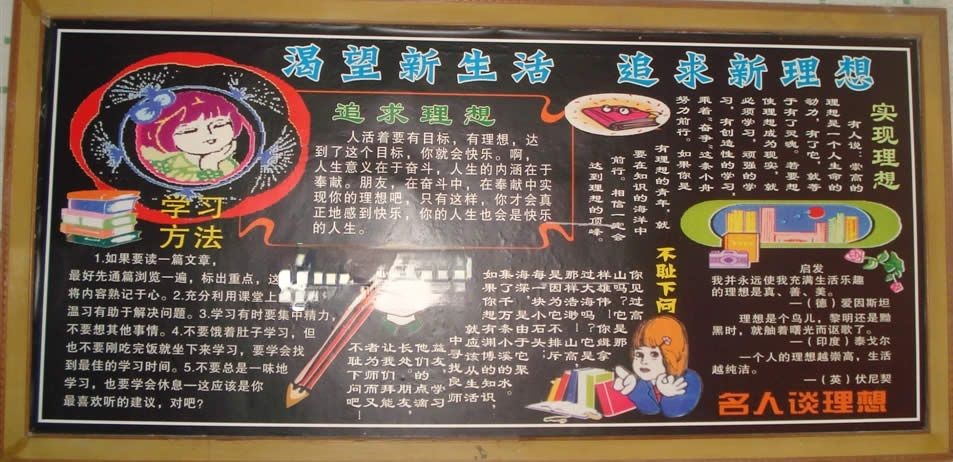 渴望新生活 追求新理想
追求理想
人活着要有目标，有理想，达
到了这个目标，你就会快乐。啊，
人生意义在于奋斗，人生的内涵在于
奉献。朋友，在奋斗中，在奉献中实
现你的理想吧，只有这样，你才会真
正地感到快乐，你的人生也会是快乐
的人生。
学习
方法
1.如果要读一篇文章，
最好先通篇浏览一遍，标出重点，这
将内容熟记于心。2.充分利用课堂上
温习有助于解决问题。3.学习有时要集中精力，
不要想其他事情。4.不要饿着肚子学习，但
也不要刚吃完饭就坐下来学习，要学会找
到最佳的学习时间。5.不要总是一味地
学习，也要学会休息—这应该是你
最喜欢听的建议，对吧？
实现理想
有人说，崇高的
理想是一个人生命的
动力，有了它，就等
于有了灵魂。若要想
使理想成为现实，就
必须学习，顽强的学
习，有创造性的学习，
乘着“奋争”这条小舟
努力前行。如果你是
有理想的青年，就
要在知识的海洋中
前行。相信一定会
达到理想的顶峰。
不耻下问
你见过高
山吗？你
样雄伟？
过大海吗？
那样浩渺？
是因为
每一块石头，
海深不
了千万条小溪
集了
如果你想
就应该博
中寻找良师
益友，
他们的点滴
长处。朋友，
让我们又能
者为师而
不耻下问吧
启发
我并永远使我充满生活乐趣
的理想是真、善、美。
—（德）爱因斯坦
理想是个鸟儿，黎明还是黝
黑时，就触着曙光而讴歌了。
—（印度）泰戈尔
一个人的理想越崇高，生活
越纯洁。
—（英）伏尼契
名人谈理想